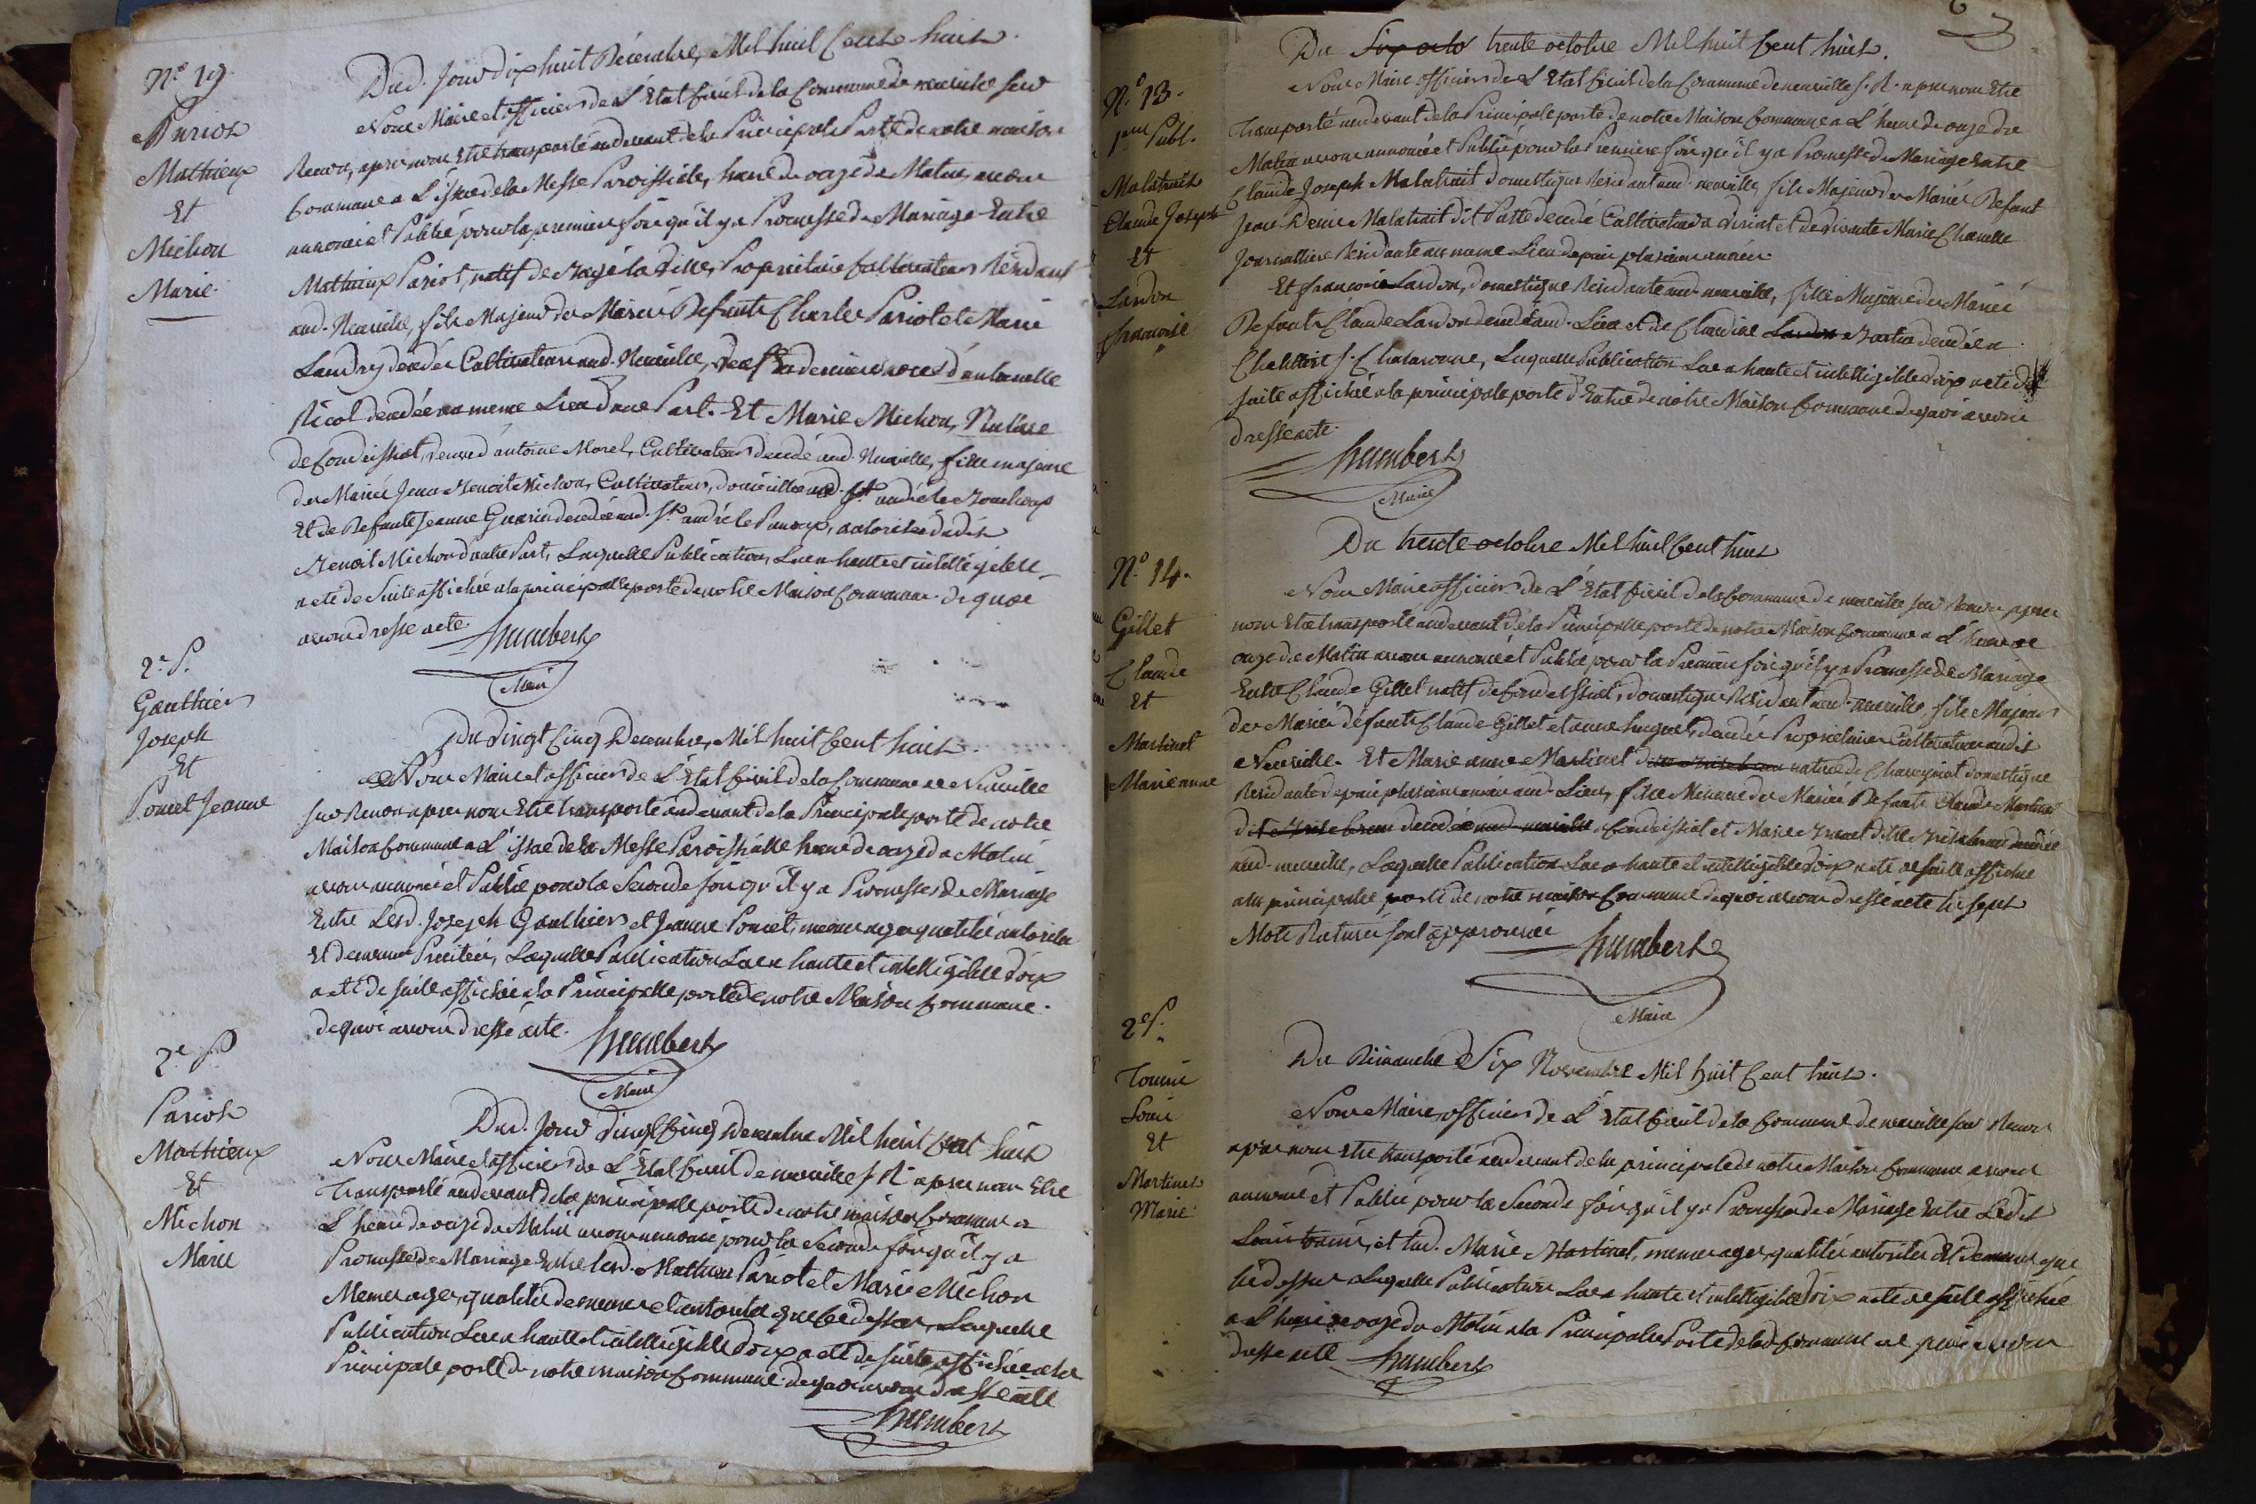 N.º 19.
Pariot
Mathieux
Et
Michon
Marie.
Dud. Jour Dix huit Décembre, Mil huit Cent huit.
Nous Maire et officier de L'Etat Civil de la Commune de neuville sur
Renon, apres nous Etre transporté au devant de la Principale Porte de notre maison
Commune a L'issue de la Messe Paroissiale, heure de onze du Matin, avons
annoncé et Publié pour la premiere fois qu'il y a Promesse de Mariage Entre
Mathieux Pariot, natif de Bagé la Ville, Propriétaire Cultivateur Résidant
aud. Neuville, fils Majeur des Mariés Defunts Charles Pariot et Marie
Landry décédés Cultivateurs aud. Neuville,
Nicol décédée au meme Lieu d'une Part. Et Marie Michon, Native
de Condeissiat, veuve d'antoine Morel, Cultivateur décédé aud. Neuville, fille majeure
des Mariés Jean Benoit Michon, Cultivateur, domicilié aud. St. andré le Bouchoux
Et de Defunte Jeanne Guerin décédée aud. St. andré le Panoux, autorisée dudit
Benoit Michon d'autre Part, Laquelle Publication, Lue a haute et intelligible
a été de Suite affichée a la principalle porte de notre Maison Commune. de quoi
avons dressé acte.
Humbert
Maire
2.e P.
Gauthier
Joseph
Et
Poncet Jeanne
Du Vingt Cinq Decembre, Mil huit Cent huit.
Nous Maire et officier de L'Etat Civil de la Commune de Neuville
sur Renon apres nous Etre transporté au devant de la Principale porte de notre
Maison Commune a L'issue de la Messe Paroissialle heure de onze du Matin
avons annoncé et Publié pour la Seconde fois qu'il y a Promesses de Mariage
Entre Led. Joseph Gauthier et Jeanne Poncet, meme ages qualités autorités
Et demeure Précités, Laquelle Publication Lue a haute et intelligible Voix
a été de suite affichée a la Principalle porte de notre Maison Commune.
de quoi avons dressé acte.
Humbert
Maire
2.e P
Pariot
Mathieux
Et
Michon
Marie
Dud. Jour Vingt Cinq Decembre Mil huit Cent huit
Nous Maire et officier de L'Etat Civil de neuville s. R. apres nous Etre
Transporté au devant de la principalle porte de notre maison Commune a
L'heure de onze du Matin avons annoncé pour la Seconde fois qu'il y a
Promesse de Mariage Entre Led. Mathieux Pariot et Marie Michon
Memes ages, qualités demeure et autorité que Ci dessus, Laquelle
Publication Lue a haute et intelligible Voix a été de suite affichée a la
Principale porte de notre maison Commune. de quoi avons dressé acte
Humbert
N.º 13.
1.ere Publ.
Malatrait
Claude Joseph
Et
Landon
françoise
Du Six octo trente octobre Mil huit Cent huit.
Nous Maire officier de L'Etat Civil de la Commune de neuville s. R. apres nous Etre
Transporté au devant de la Principale porte de notre Maison Commune a L'heure de onze du
Matin avons annoncé et Publié pour la Premiere fois qu'il y a Promesse de Mariage Entre
Claude Joseph Malatrait domestique Résidant aud. neuville, fils Majeur des Mariés Defunt
Jean Denis Malatrait dit Patte décédé Cultivateur a et de Vivante Marie Chanelle
Journalliere Résidante au meme Lieu depuis plusieurs années.
Et françoise Landon, domestique Résidante aud. neuville, fille Majeure des Mariés
Defunts Claude Landon décédé aud. Lieu et de Claudine Landon décédée a
Chatillon s. Chalaronne, Laquelle Publication Lue a haute et intelligible Voix a été de
suite affichée a la principale porte d'Entrée de notre Maison Commune de quoi avons
dressé acte.
Humbert
Maire
N.º 14.
Gillet
Claude
Et
Martinet
Marie anne
Du trente octobre Mil huit Cent huit
Nous Maire officier de L'Etat Civil de la Commune de neuville sur Renon apres
nous Etre transporté au devant de la Principalle porte de notre Maison Commune a L'heure de
onze du Matin avons annoncé et Publié pour la Premiere fois qu'il y a Promesse de Mariage
Entre Claude Gillet natif de Condeissiat, domestique Résidant aud. neuville, fils Majeur
des Mariés défunts Claude Gillet et anne huguet, décédés Propriétaires Cultivateurs audit
Neuville. Et Marie anne Martinet native de Chaveyriat domestique
Résidante depuis plusieurs années aud. Lieu, fille Mineure des Mariés Defunts Claude Martinet
dit décédé aud. neuville a Condeissiat et Marie dite décédée
aud. neuville, Laquelle Publication Lue a haute et intelligible Voix a été de suite affichée
a la principalle porte de notre maison Commune de quoi avons dressé acte Les sept
Mots Raturés sont approuvés
Humbert
Maire
2.e P.
Tonni
Louis
Et
Martinet
Marie
Du Dimanche Six Novembre Mil huit Cent huit.
Nous Maire, officier de L'Etat Civil de la Commune de neuville sur Renon
apres nous Etre transporté au devant de la principale de notre Maison Commune avons
annoncé et Publié pour la Seconde fois qu'il y a Promesse de Mariage Entre Ledit
Louis Tonni, et Lad. Marie Martinet, meme ages, qualités autorités Et demeure que
Ci dessus Laquelle Publication Lue a haute et intelligible Voix a été de suite affichée
a L'heure de onze du Matin a la Principale Porte de lad. Commune de quoi avons
dressé acte
Humbert